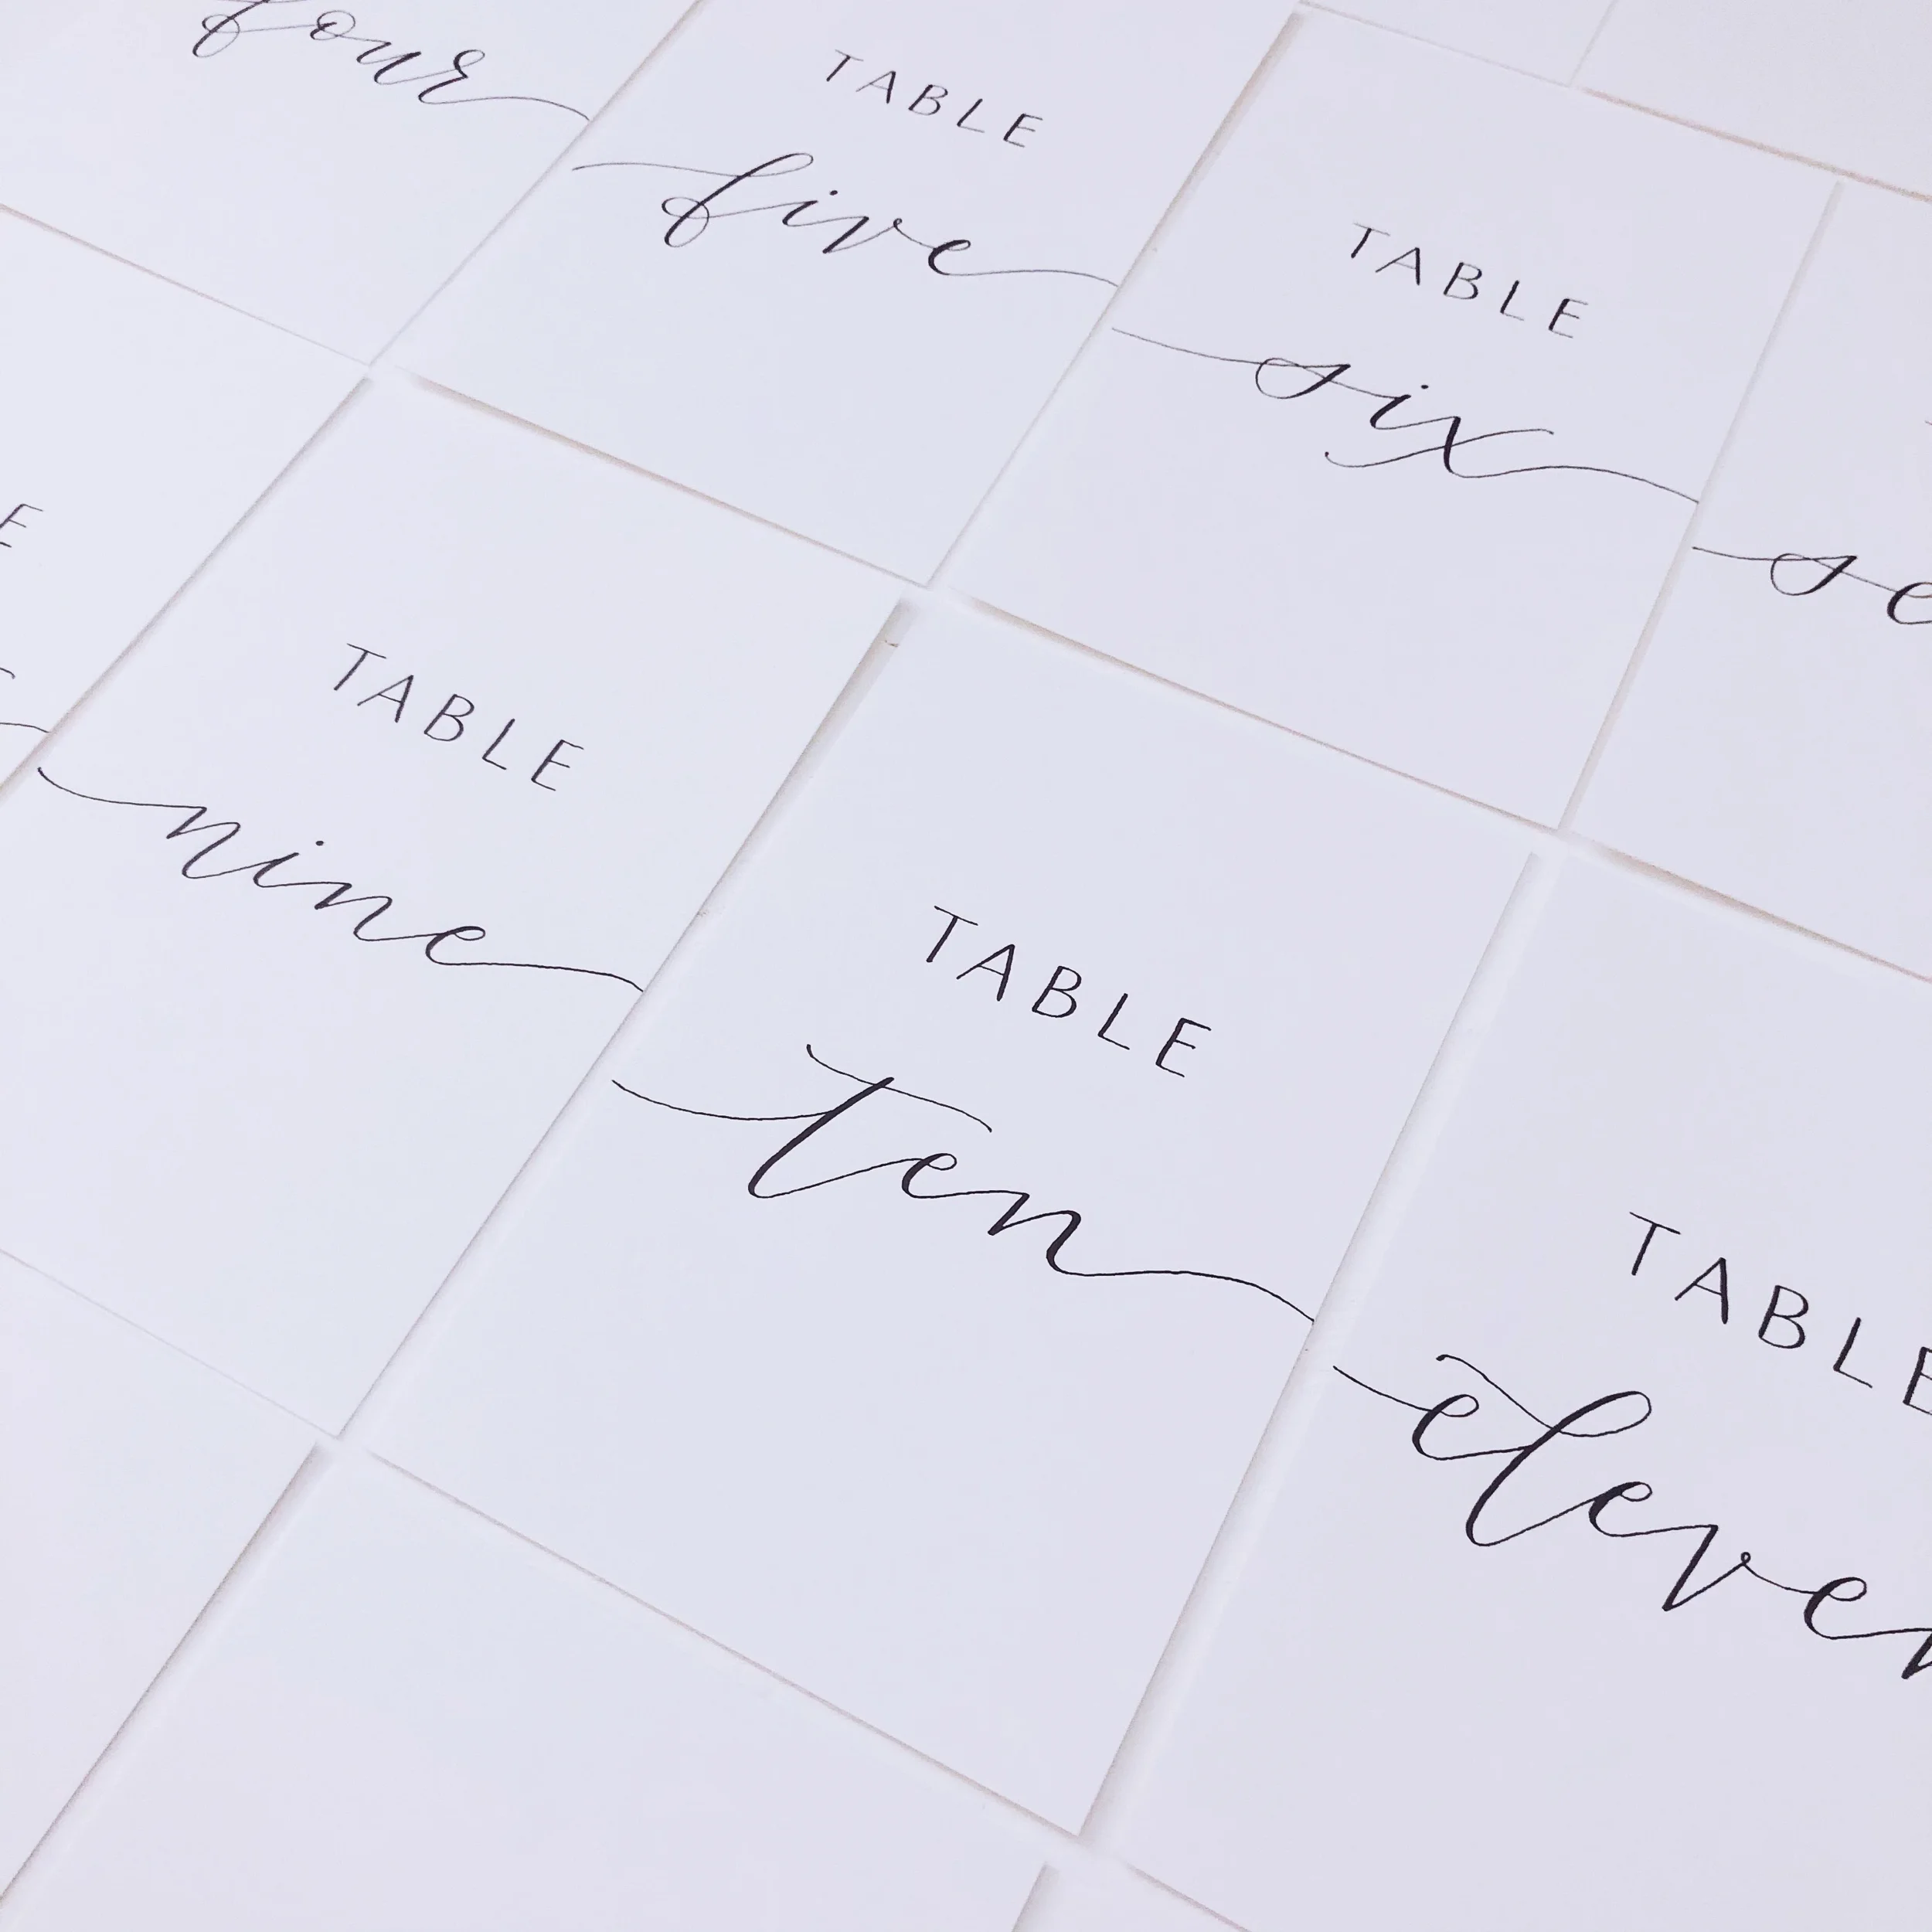 four
TABLE
five
TABLE
six
se
E
TABLE
nine
TABLE
ten
TABLE
eleven